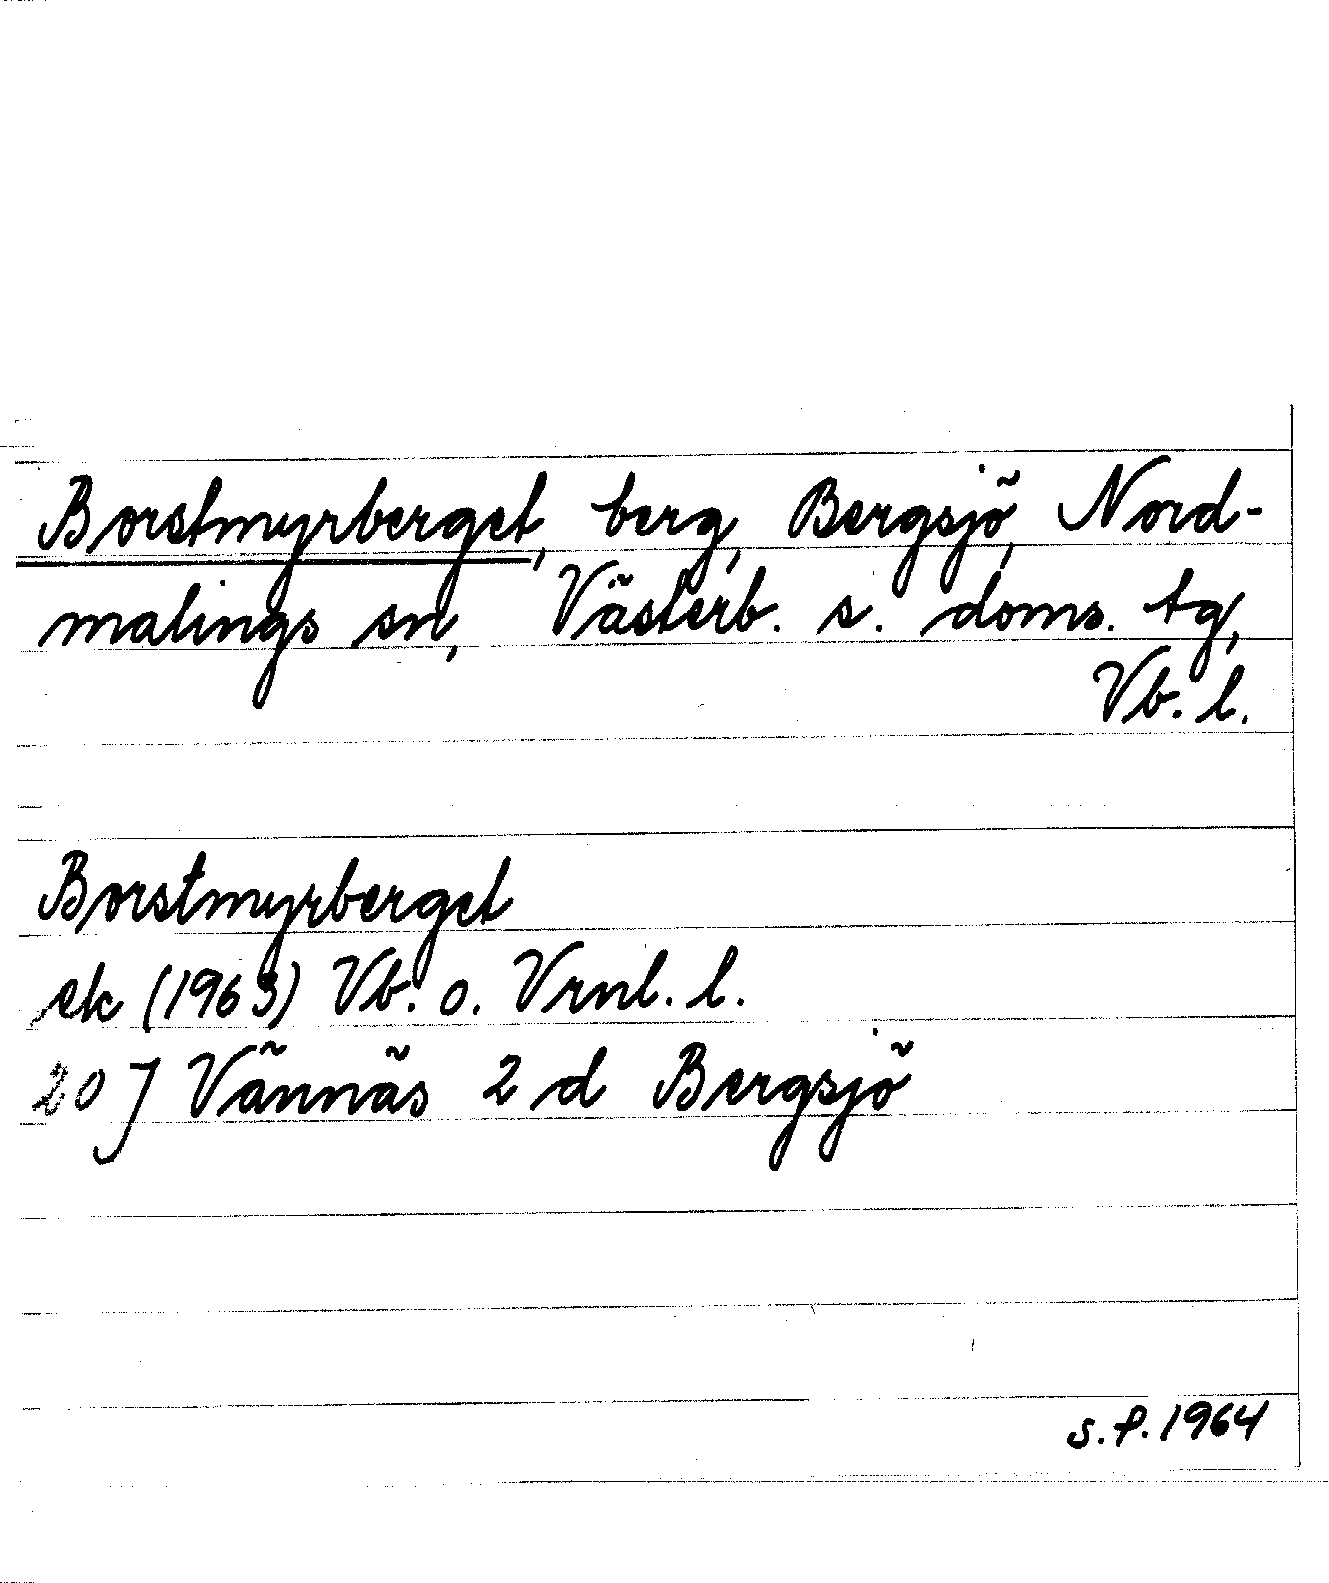 Borstmyrberget, berg, Bergsjö, Nord-
malings sn, Västerb. s. doms. tg,
Vb. l.
Borstmyrberget
ek (1963) Vb. o. Vrnl. l.
20 J Vännäs 2 d Bergsjö
s. f. 1964